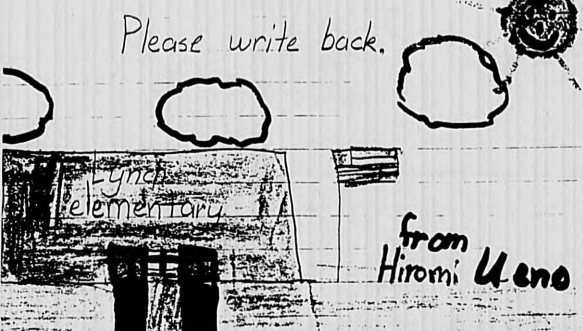 Please write back.
Lynch
elementary
from
Hiromi Ueno